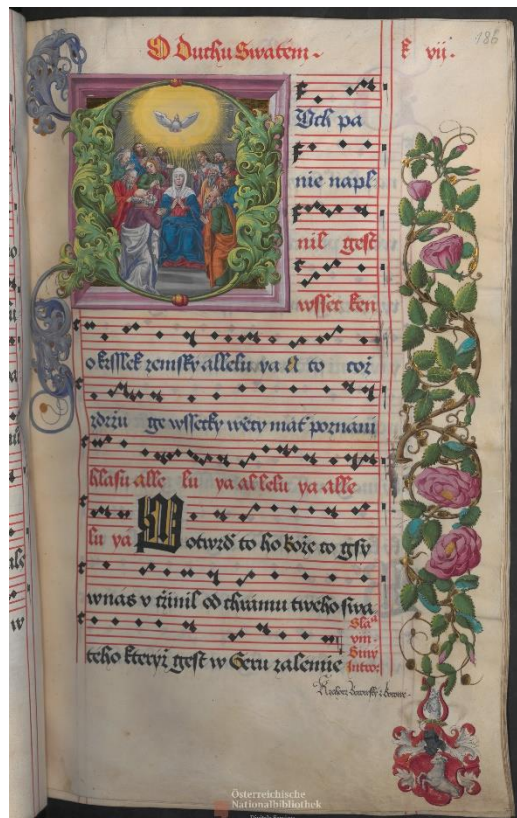 O Duchu Swatem. k vij. 186
Vch pa
nie napl
nil gest
wsset ken
okrsslek zemsky allelu ya A to coz
zdrzu ge wssecky wecy mat poznani
hlasu alle lu ya al lelu ya alle
lu ya Motwrd to ho boze to gsy
wnas v tzinil od chramu tweho swa
teho kteryz gest w Geru zalemie
Sla
viii.
Introi
Österreichische
Nationalbibliothek